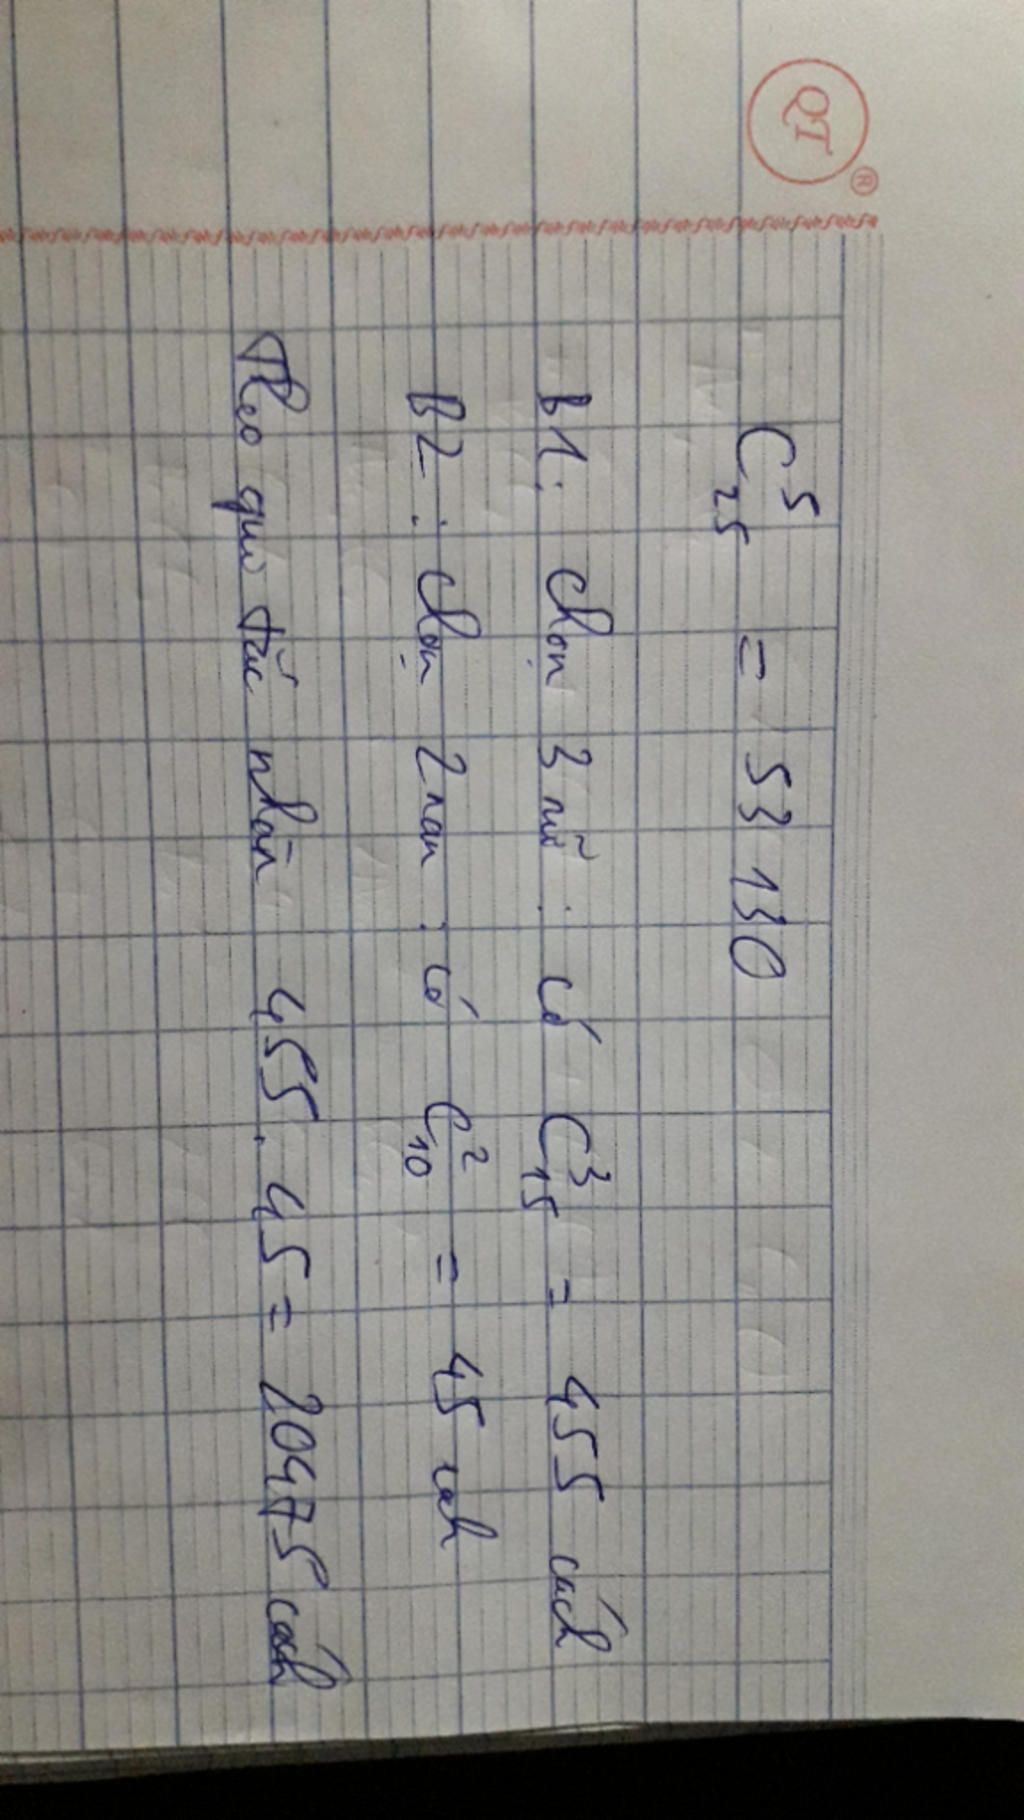 QT ®
C⁵₂₅ = 53130
B1: chọn 3 nữ : có C³₁₅ = 455 cách
B2 : chọn 2 nam : có C²₁₀ = 45 cách
Theo qui tắc nhân 455.45 = 20475 cách